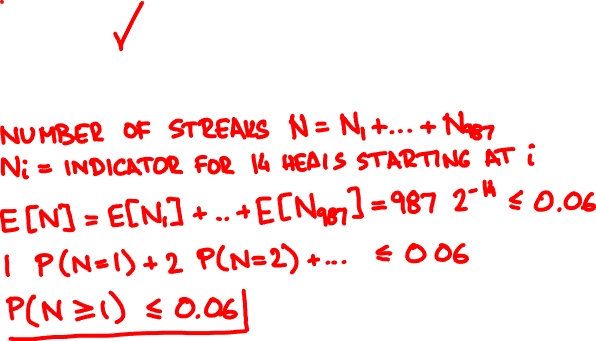 NUMBER OF STREAKS N = N₁ + ... + N₉₈₇
Ni = INDICATOR FOR 14 HEADS STARTING AT i
E[N] = E[N₁] + .. + E[N₉₈₇] = 987 2⁻¹⁴ ≤ 0.06
1 P(N=1) + 2 P(N=2) + ... ≤ 0 06
P(N ≥ 1) ≤ 0.06